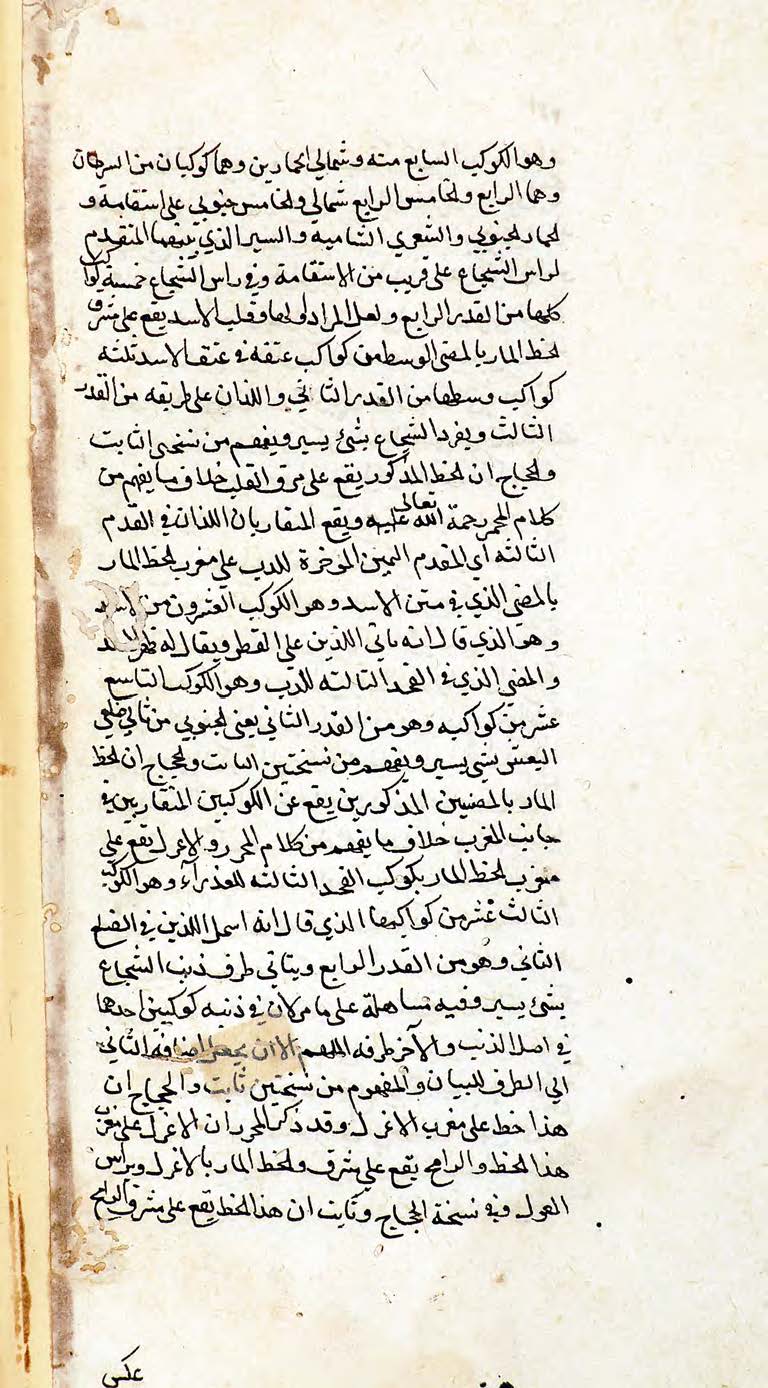 وهو الكوكب السابع منه وشمالي الحمارين وهما كوكبان من السرطان
وهما الرابع والخامس الرابع شمالي والخامس جنوبي على استقامة و
الحمار الجنوبي والشعري الشامية والسير الذي بينهما المتقدم
لراس الشجاع على قريب من الاستقامة وفي راس الشجاع خمسة كواكب
كلها من القدر الرابع ولعل المراد اولها وقلب الاسد يقع على شرق
الخط المار بالمضي الوسط من كواكب عنقه في عنق الاسد ثلثه
كواكب وسطها من القدر الثاني واللذان على طريقه من القدر
الثالث ويفرد الشجاع بشئ يسير ويفهم من نسختي الثابت
والحجاج ان الخط المذكور يقع على شرق القلب خلاف ما يفهم من
كلام المحرر رحمة الله تعالى عليه ويقع المتقاربان اللذان في القدم
الثالثه اي المقدم اليمين الموخرة للدب على مغرب الخط المار
بالمضي الذي في متن الاسد وهو الكوكب العشرون من الاسد
وهو الذي قال انه ثاني اللذين على القطن ويقال له ظهر الاسد
والمضي الذي في الفخذ الثالثه للدب وهو الكوكب التاسع
عشر من كواكبه وهو من القدر الثاني يعنى الجنوبي من ثالي ضلعي
النعش بشي يسير ويفهم من نسختين الثابت والحجاج ان الخط
المار بالمضيين المذكورين يقع عن الكوكبين المتقاربين في
جانب المغرب خلاف ما يفهم من كلام المحرر والاعزل يقع على
مغرب الخط المار بكوكب الفخذ الثالثه للعذرآء وهو الكوكب
الثالث عشر من كواكبها الذي قال انه اسمل اللذين في الضلع
الثاني وهو من القدر الرابع ويتاني طرف ذنب الشجاع
بشئ يسير وفيه مساهلة على ما مر لان في ذنبه كوكبين احدهما
في اصل الذنب والآخر طرفه اللهم الا ان يجعل اضافه الثاني
الي الطرف للبيان والمفهوم من نسختين ثابت والحجاج ان
هذا خط على مغرب الاعزل وقد ذكر المحرر ان الاعزل على مغرب
هذا الخط والرامح يقع على شرق الخط المار بالاعزل وبراس
العول وفي نسخة الحجاج وثابت ان هذا الخط يقع على مشرق الرامح
عكس